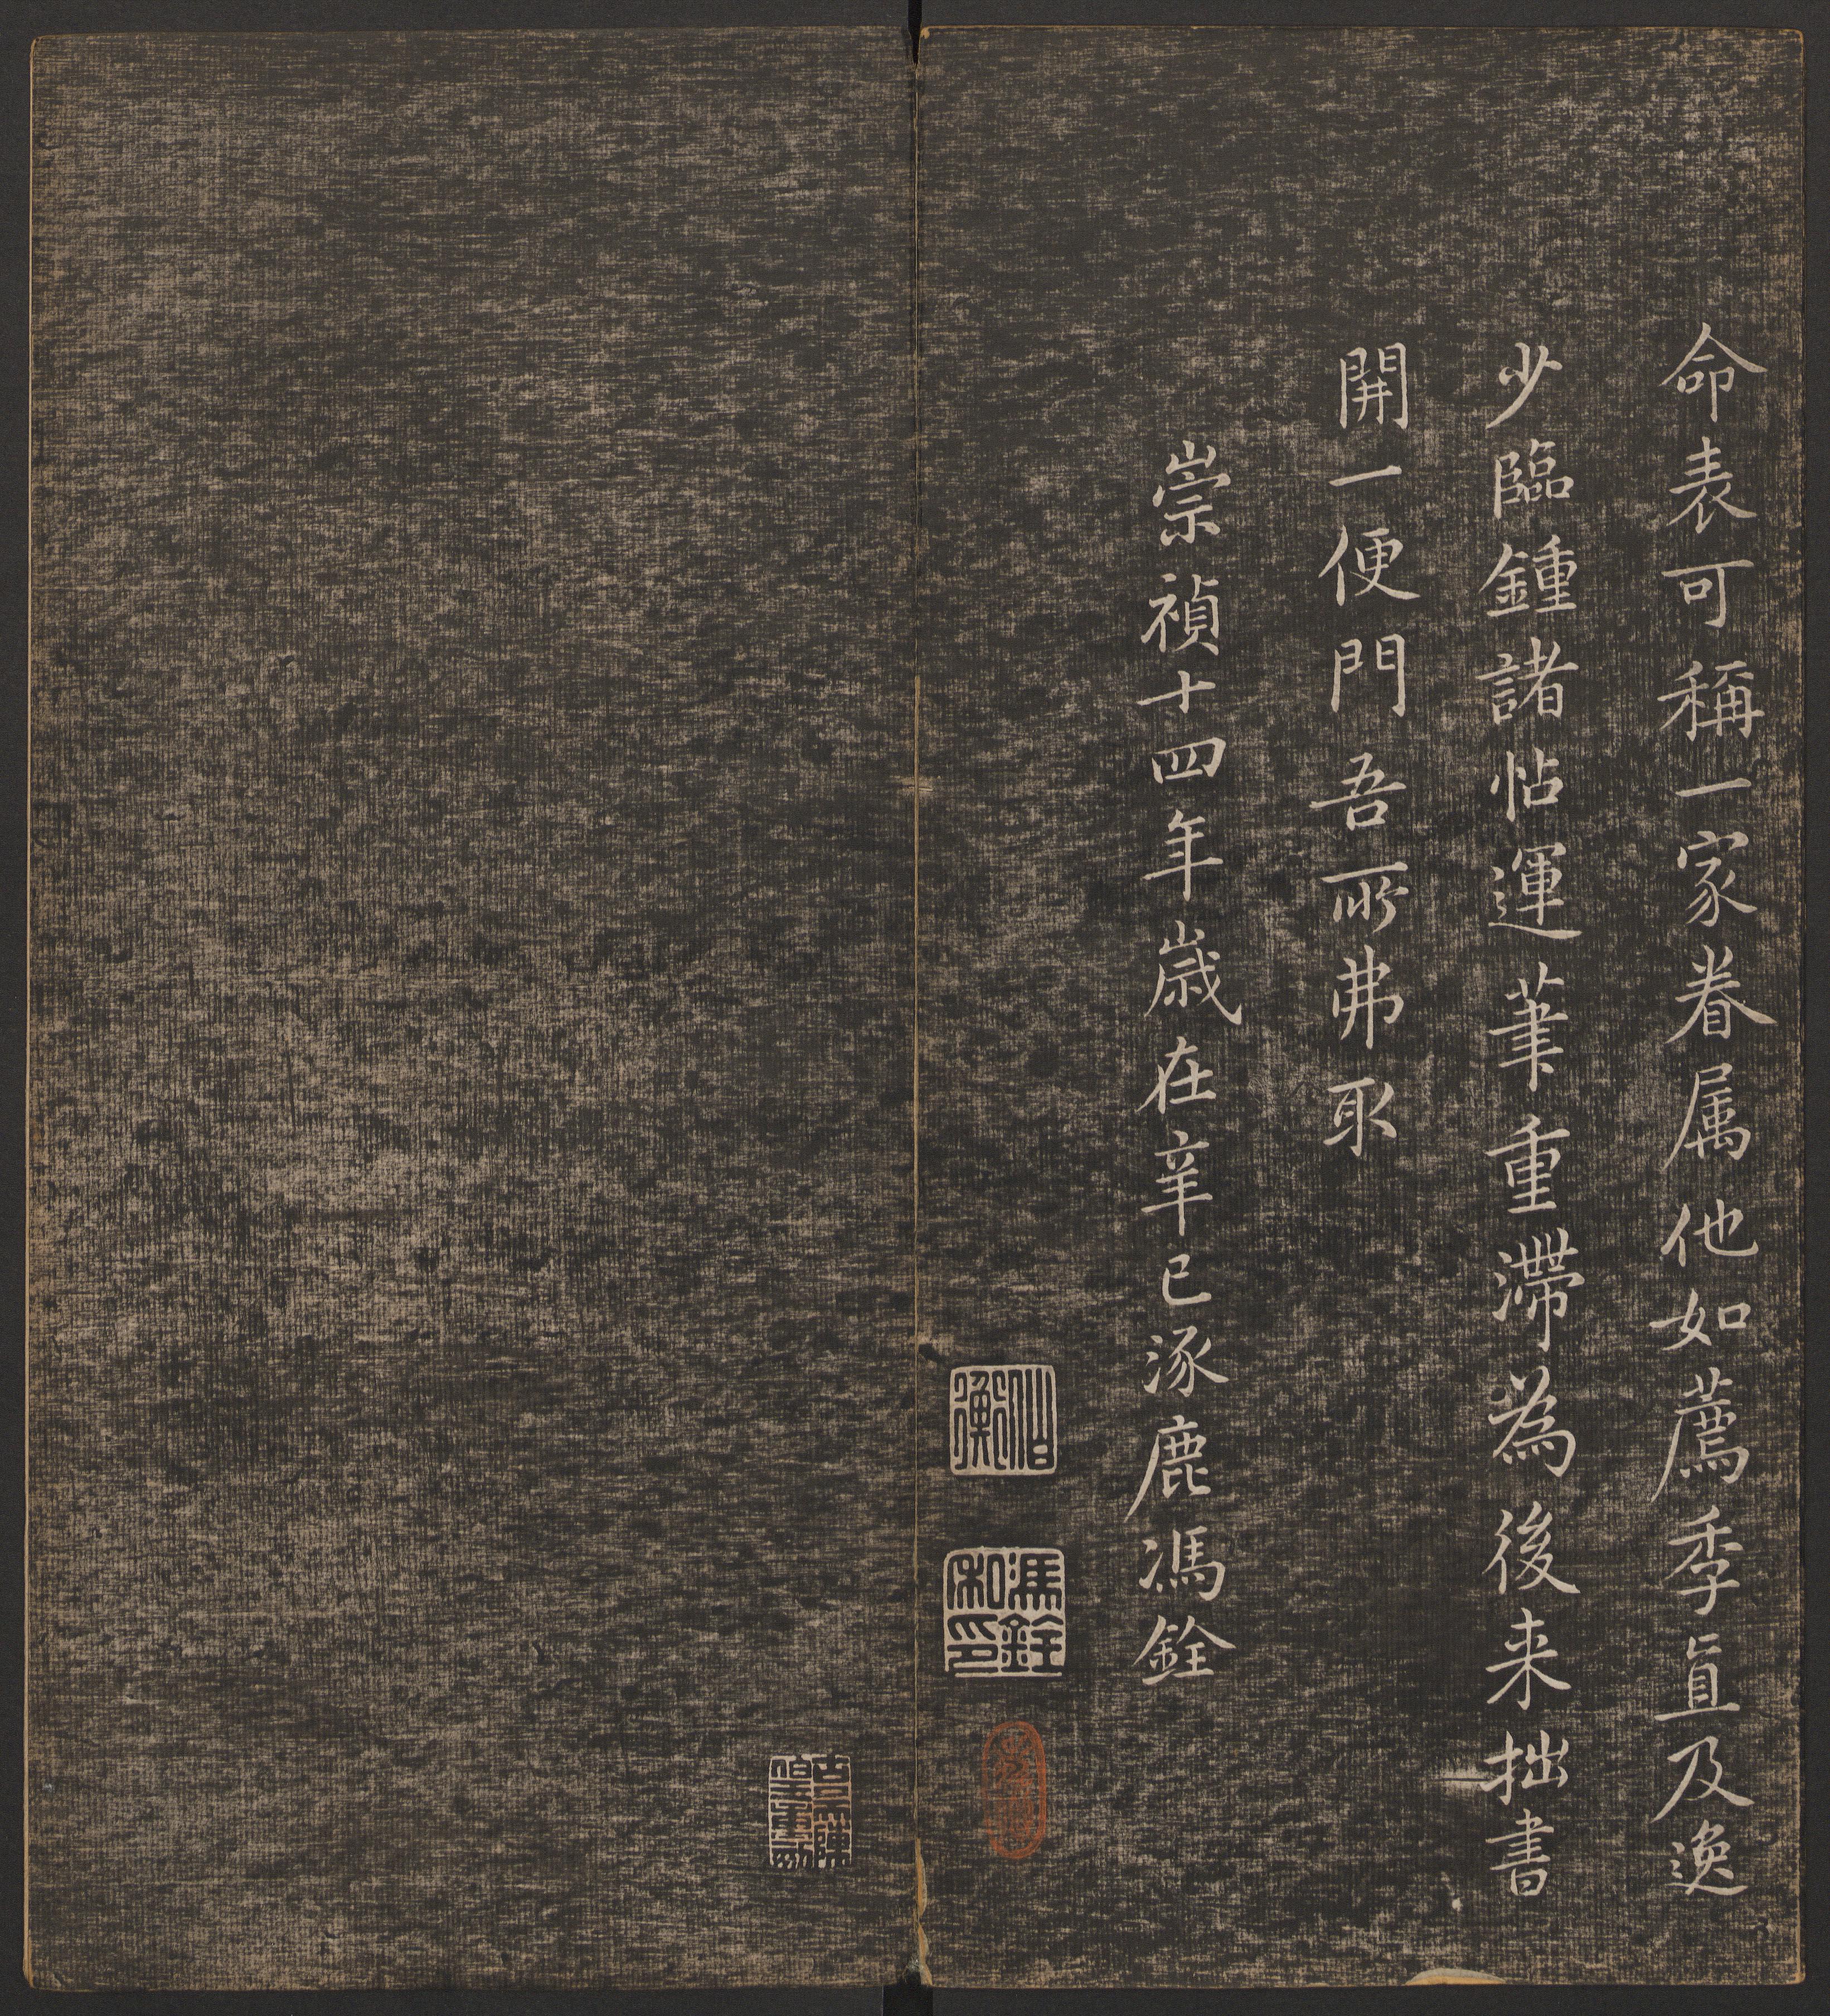 命表可稱一家眷属他如薦季直及逸
少臨鍾諸帖運筆重滯為後来拙書
開一便門吾所弗取
崇禎十四年歲在辛巳涿鹿馮銓
伯衡
馮銓私印